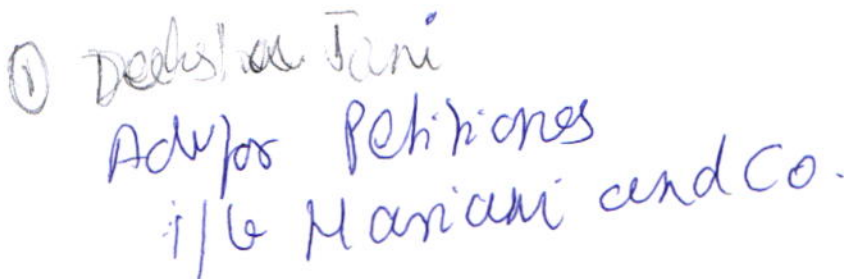 ① Deeksha Jani
Adv for Petitioner
i/b Mariani and Co.